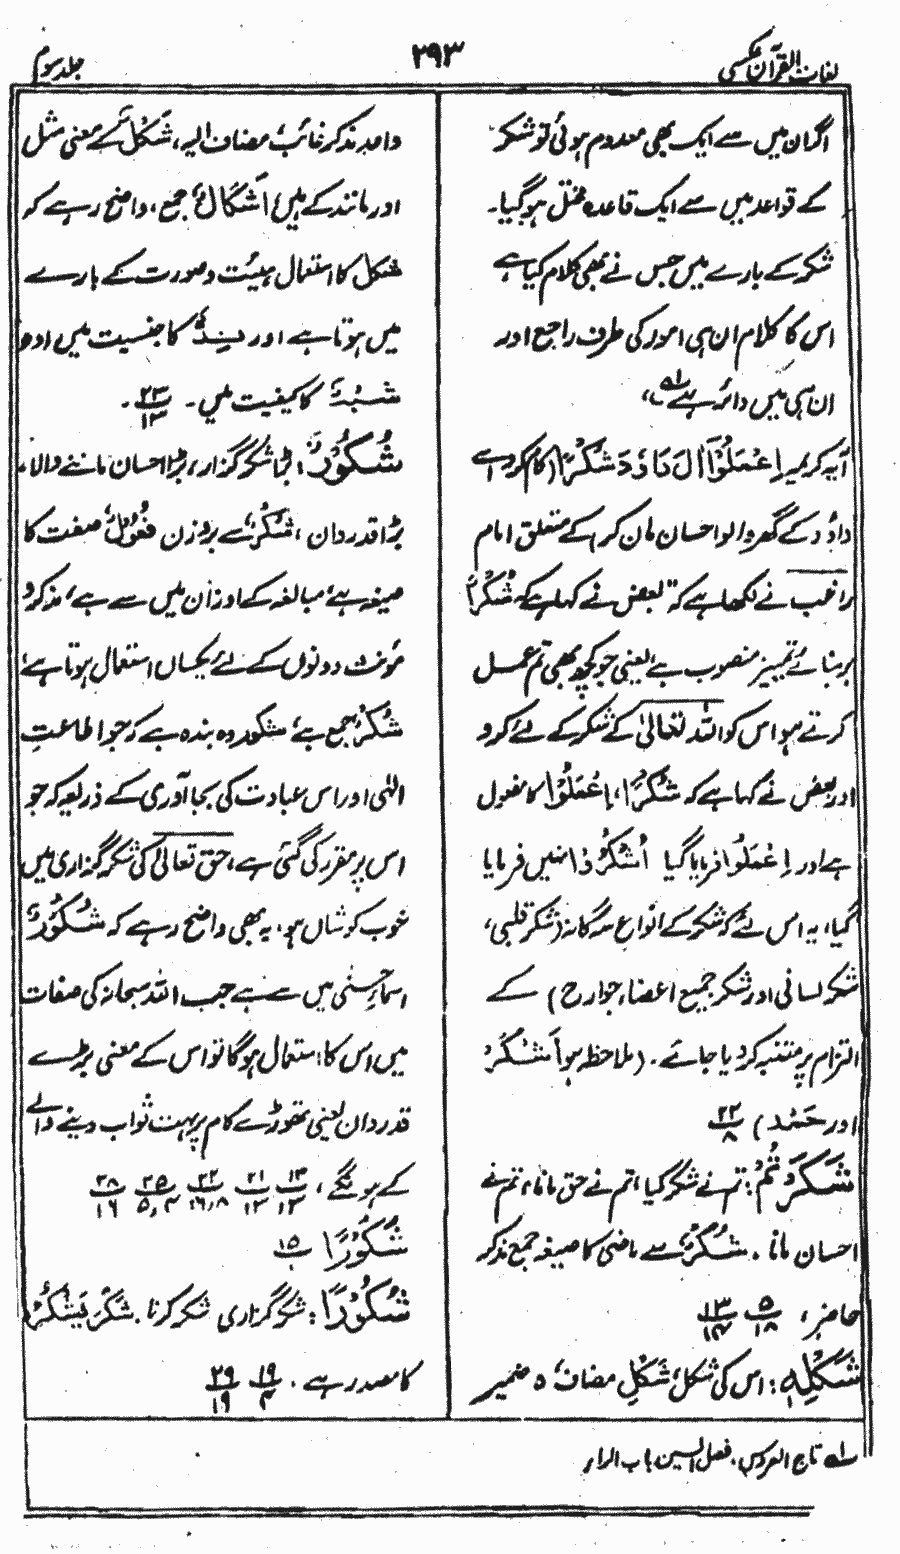 لغات القرآن عکسی
۲۹۳
جلد سوم
اگر ان میں سے ایک بھی معدوم ہوئی تو شکر
کے قواعد میں سے ایک قاعدہ مختل ہو گیا۔
شکر کے بارے میں جس نے بھی کلام کیا ہے
اس کا کلام ان ہی امور کی طرف راجع اور
ان ہی میں دائر ہے ؎۱،
آیہ کریمہ اِعْمَلُوْا اٰلَ دَاوٗدَ شُكْرًا (کام کرو اے
داؤد کے گھر والو احسان مان کر) کے متعلق امام
راغب نے لکھا ہے کہ بعض نے کہا ہے کہ شُكْرًا
بر بنائے تمییز منصوب ہے یعنی جو کچھ بھی تم عمل
کرتے ہو اس کو اللہ تعالیٰ کے شکر کے لئے کرو
اور بعض نے کہا ہے کہ شُكْرًا، اِعْمَلُوْا کا مفعول
ہے اور اِعْمَلُوْا فرمایا گیا اُشْكُرُوْا نہیں فرمایا
گیا، یہ اس لئے کہ شکر کے انواع سہ گانہ (شکر قلبی،
شکر لسانی اور شکر جمیع اعضاء جوارح) کے
التزام پر متنبہ کر دیا جائے۔ (ملاحظہ ہو اَشْكُرَ
اور حَمْد) ۲۲/۸
شَكَرْتُمْ: تم نے شکر کیا، تم نے حق مانا، تم نے
احسان مانا۔ شُكْرٌ سے ماضی کا صیغہ جمع مذکر
حاضر، ۵/۱۸ ۱۳/۱۴
شَكْلِهٖ: اس کی شکل، شَكْلِ مضاف، ہ ضمیر
واحد مذکر غائب مضاف الیہ، شَكْلٌ کے معنی مثل
اور مانند کے ہیں، اَشْكَالٌ جمع، واضح رہے کہ
شکل کا استعمال ہیئت و صورت کے بارے
میں ہوتا ہے اور نِدٌّ کا جنسیت میں اور
شِبْہٌ کا کیفیت میں۔ ۲۳/۱۳۔
شَكُوْرٌ: بڑا شکر گزار، بڑا احسان ماننے والا،
بڑا قدردان، شُكْرٌ سے بروزن فَعُوْلٌ صفت کا
صیغہ ہے، مبالغہ کے اوزان میں سے ہے، مذکر و
مؤنث دونوں کے لئے یکساں استعمال ہوتا ہے،
شُكُرٌ جمع ہے، شکور وہ بندہ ہے کہ جو اطاعتِ
الٰہی اور اس عبادت کی بجا آوری کے ذریعہ کہ جو
اس پر مقرر کی گئی ہے، حق تعالیٰ کی شکر گزاری میں
خوب کوشاں ہو، یہ بھی واضح رہے کہ شَكُوْرٌ
اسمائے حسنیٰ میں سے ہے جب اللہ سبحانہ کی صفات
میں اس کا استعمال ہو گا تو اس کے معنی بڑے
قدردان یعنی تھوڑے کام پر بہت ثواب دینے والے
کے ہونگے، ۱۳/۱۳ ۲۱/۱۳ ۲۲/۱۶،۸ ۲۵/۵،۴ ۲۸/۱۶
شَكُوْرًا ۱۵
شُكُوْرًا: شکر گزاری شکر کرنا۔ شَكَرَ يَشْكُرُ
کا مصدر ہے۔ ۱۹/۴ ۲۹/۱۹
؎۱ تاج العروس، فصل السین باب الراء